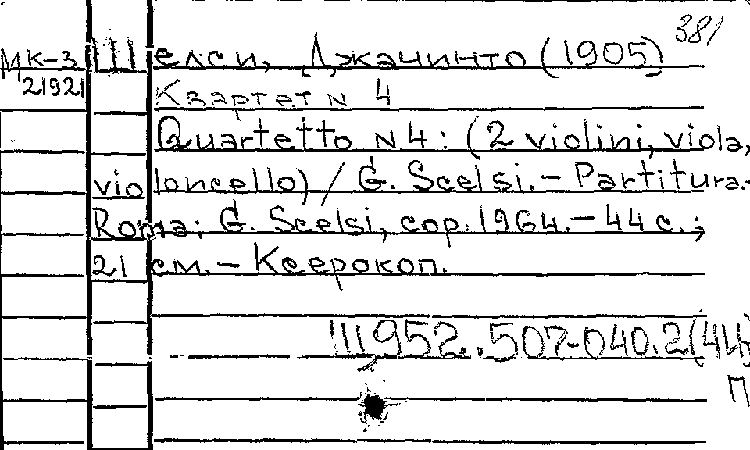 381
МК-3 Шелси, Джачинто (1905)
21921 Квартет N 4
Quartetto N4: (2 violini, viola,
violoncello) / G. Scelsi. – Partitura.-
Roma: G. Scelsi, cop. 1964. – 44 с.;
21 см. – Ксерокоп.
Ш952..507-040.2(4И)
П